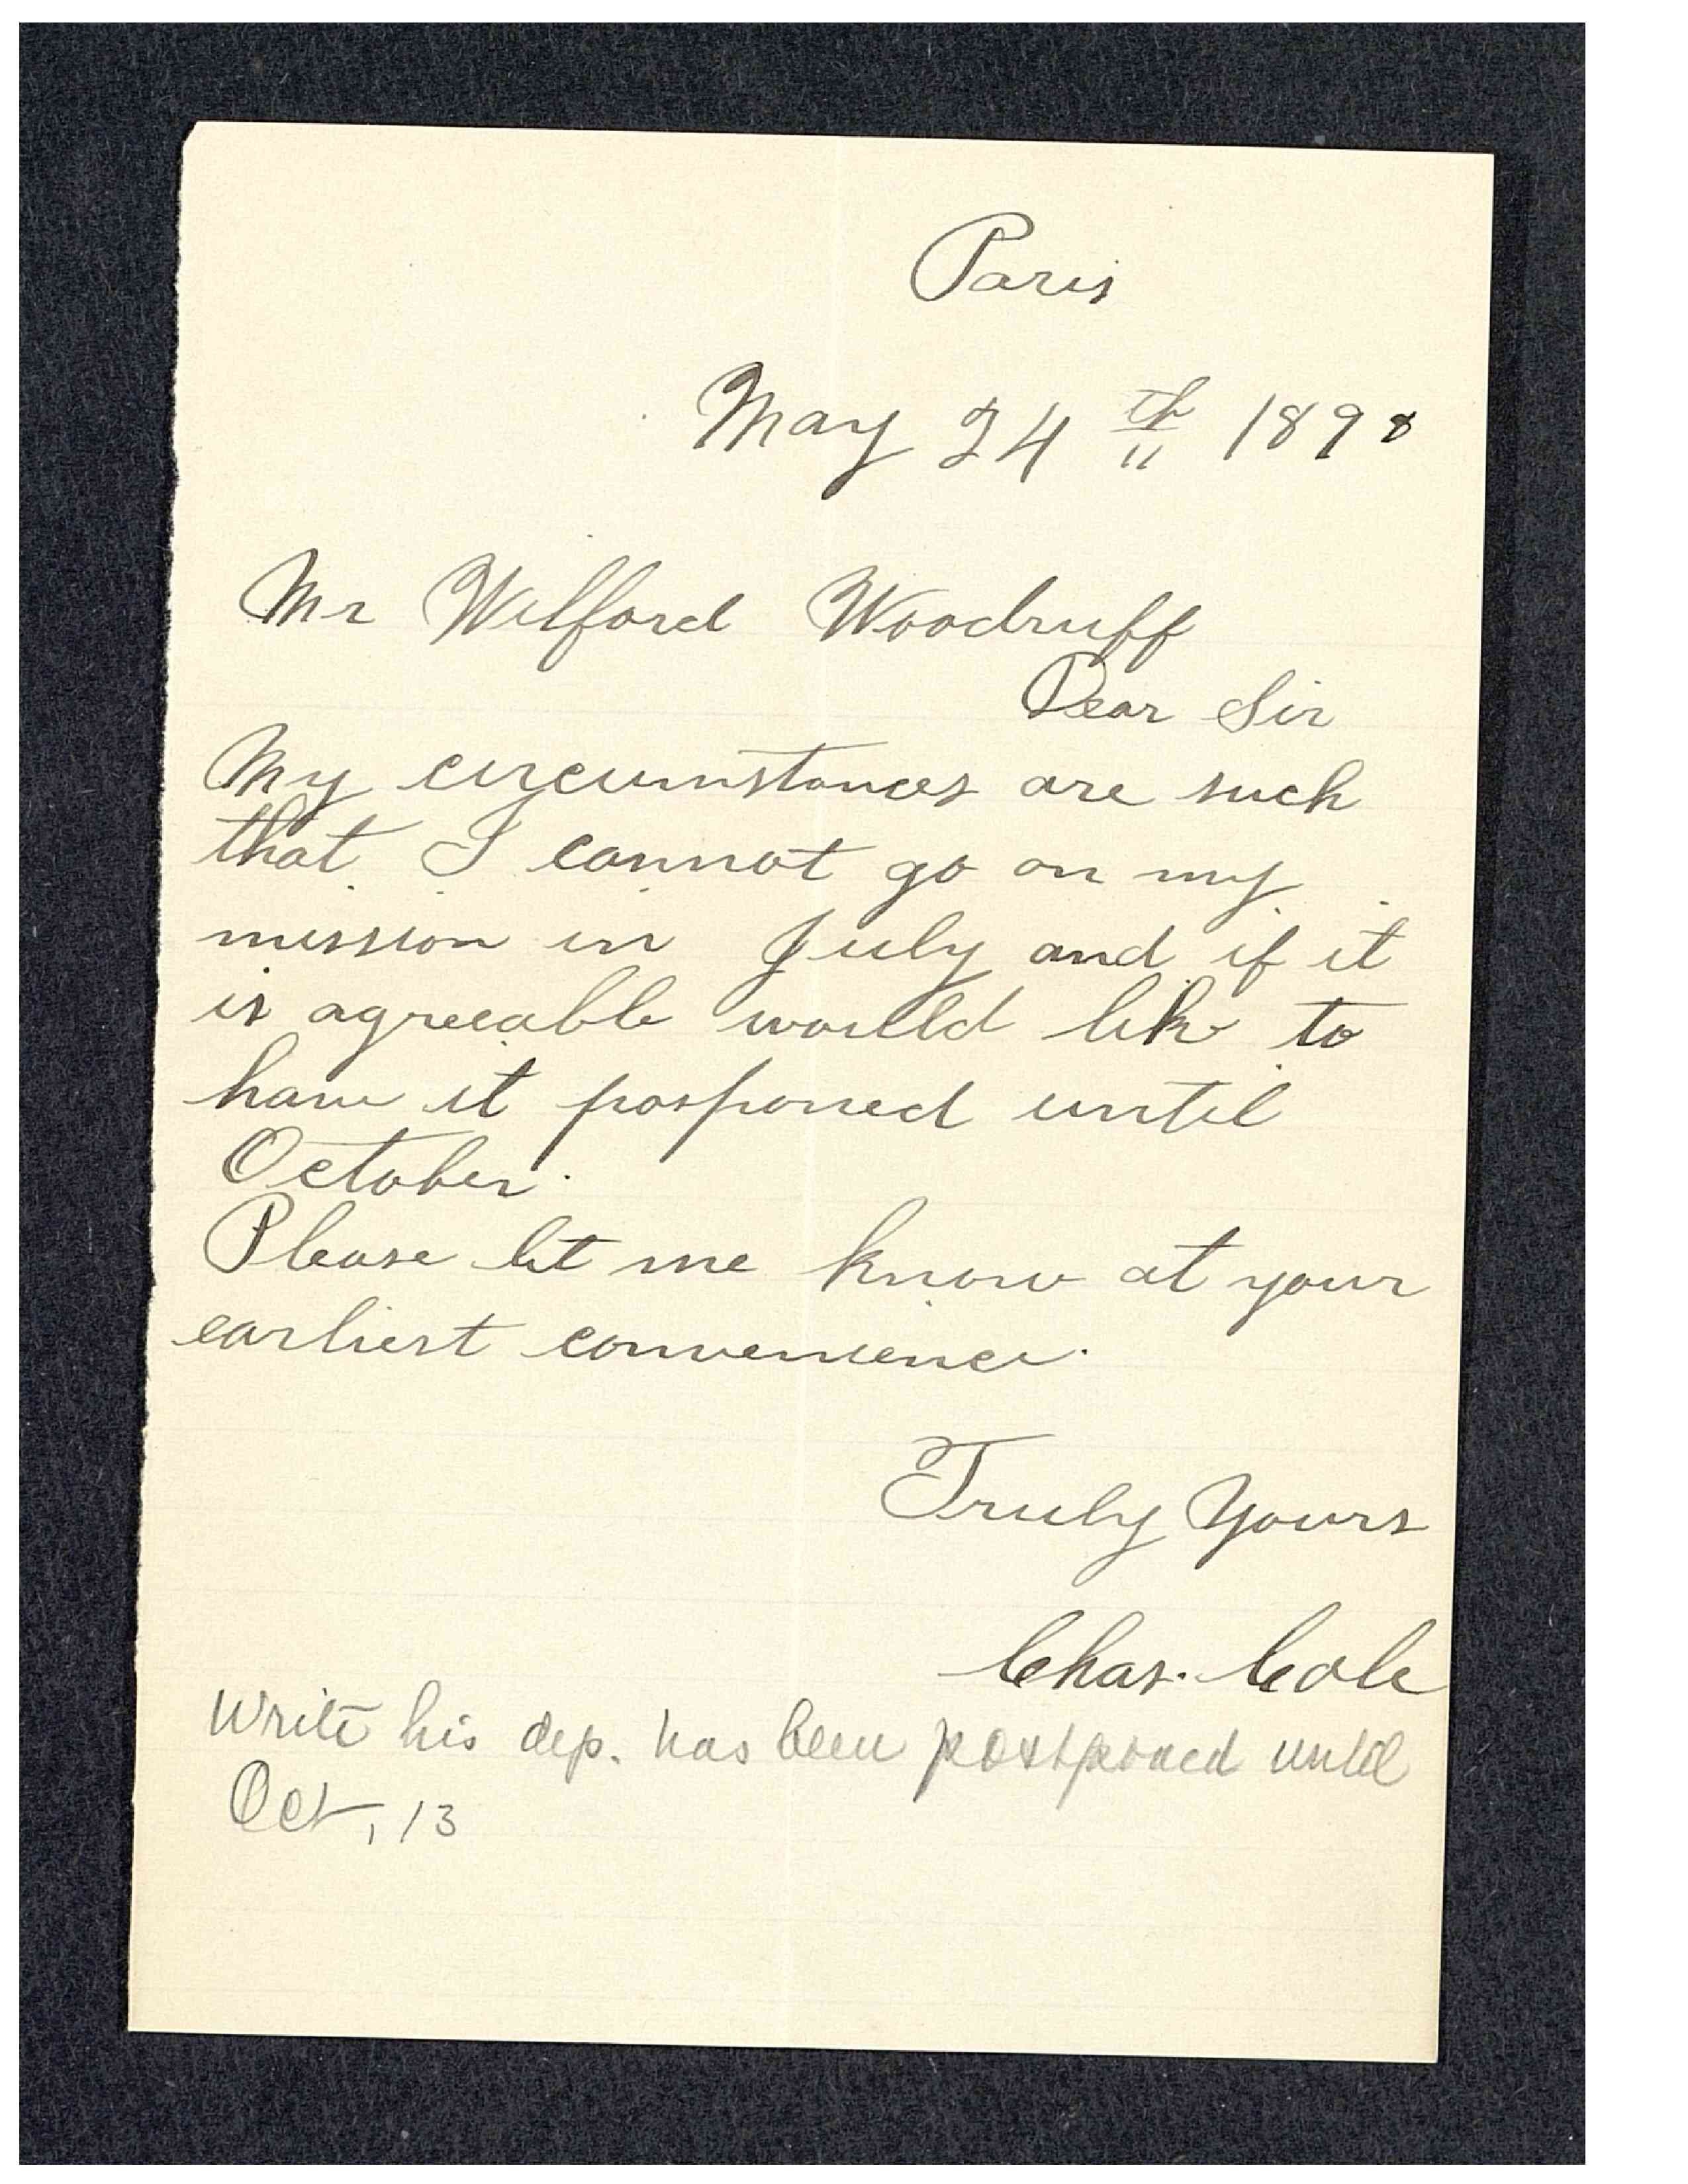 Paris
May 24th 1898
Mr Wilford Woodruff
Dear Sir
My circumstances are such
that I cannot go on my
mission in July and if it
is agreeable would like to
have it posponed until
October.
Please let me know at your
earliest convenience.
Truly Yours
Chas. Cole
Write his dep. has been postponed until
Oct, 13